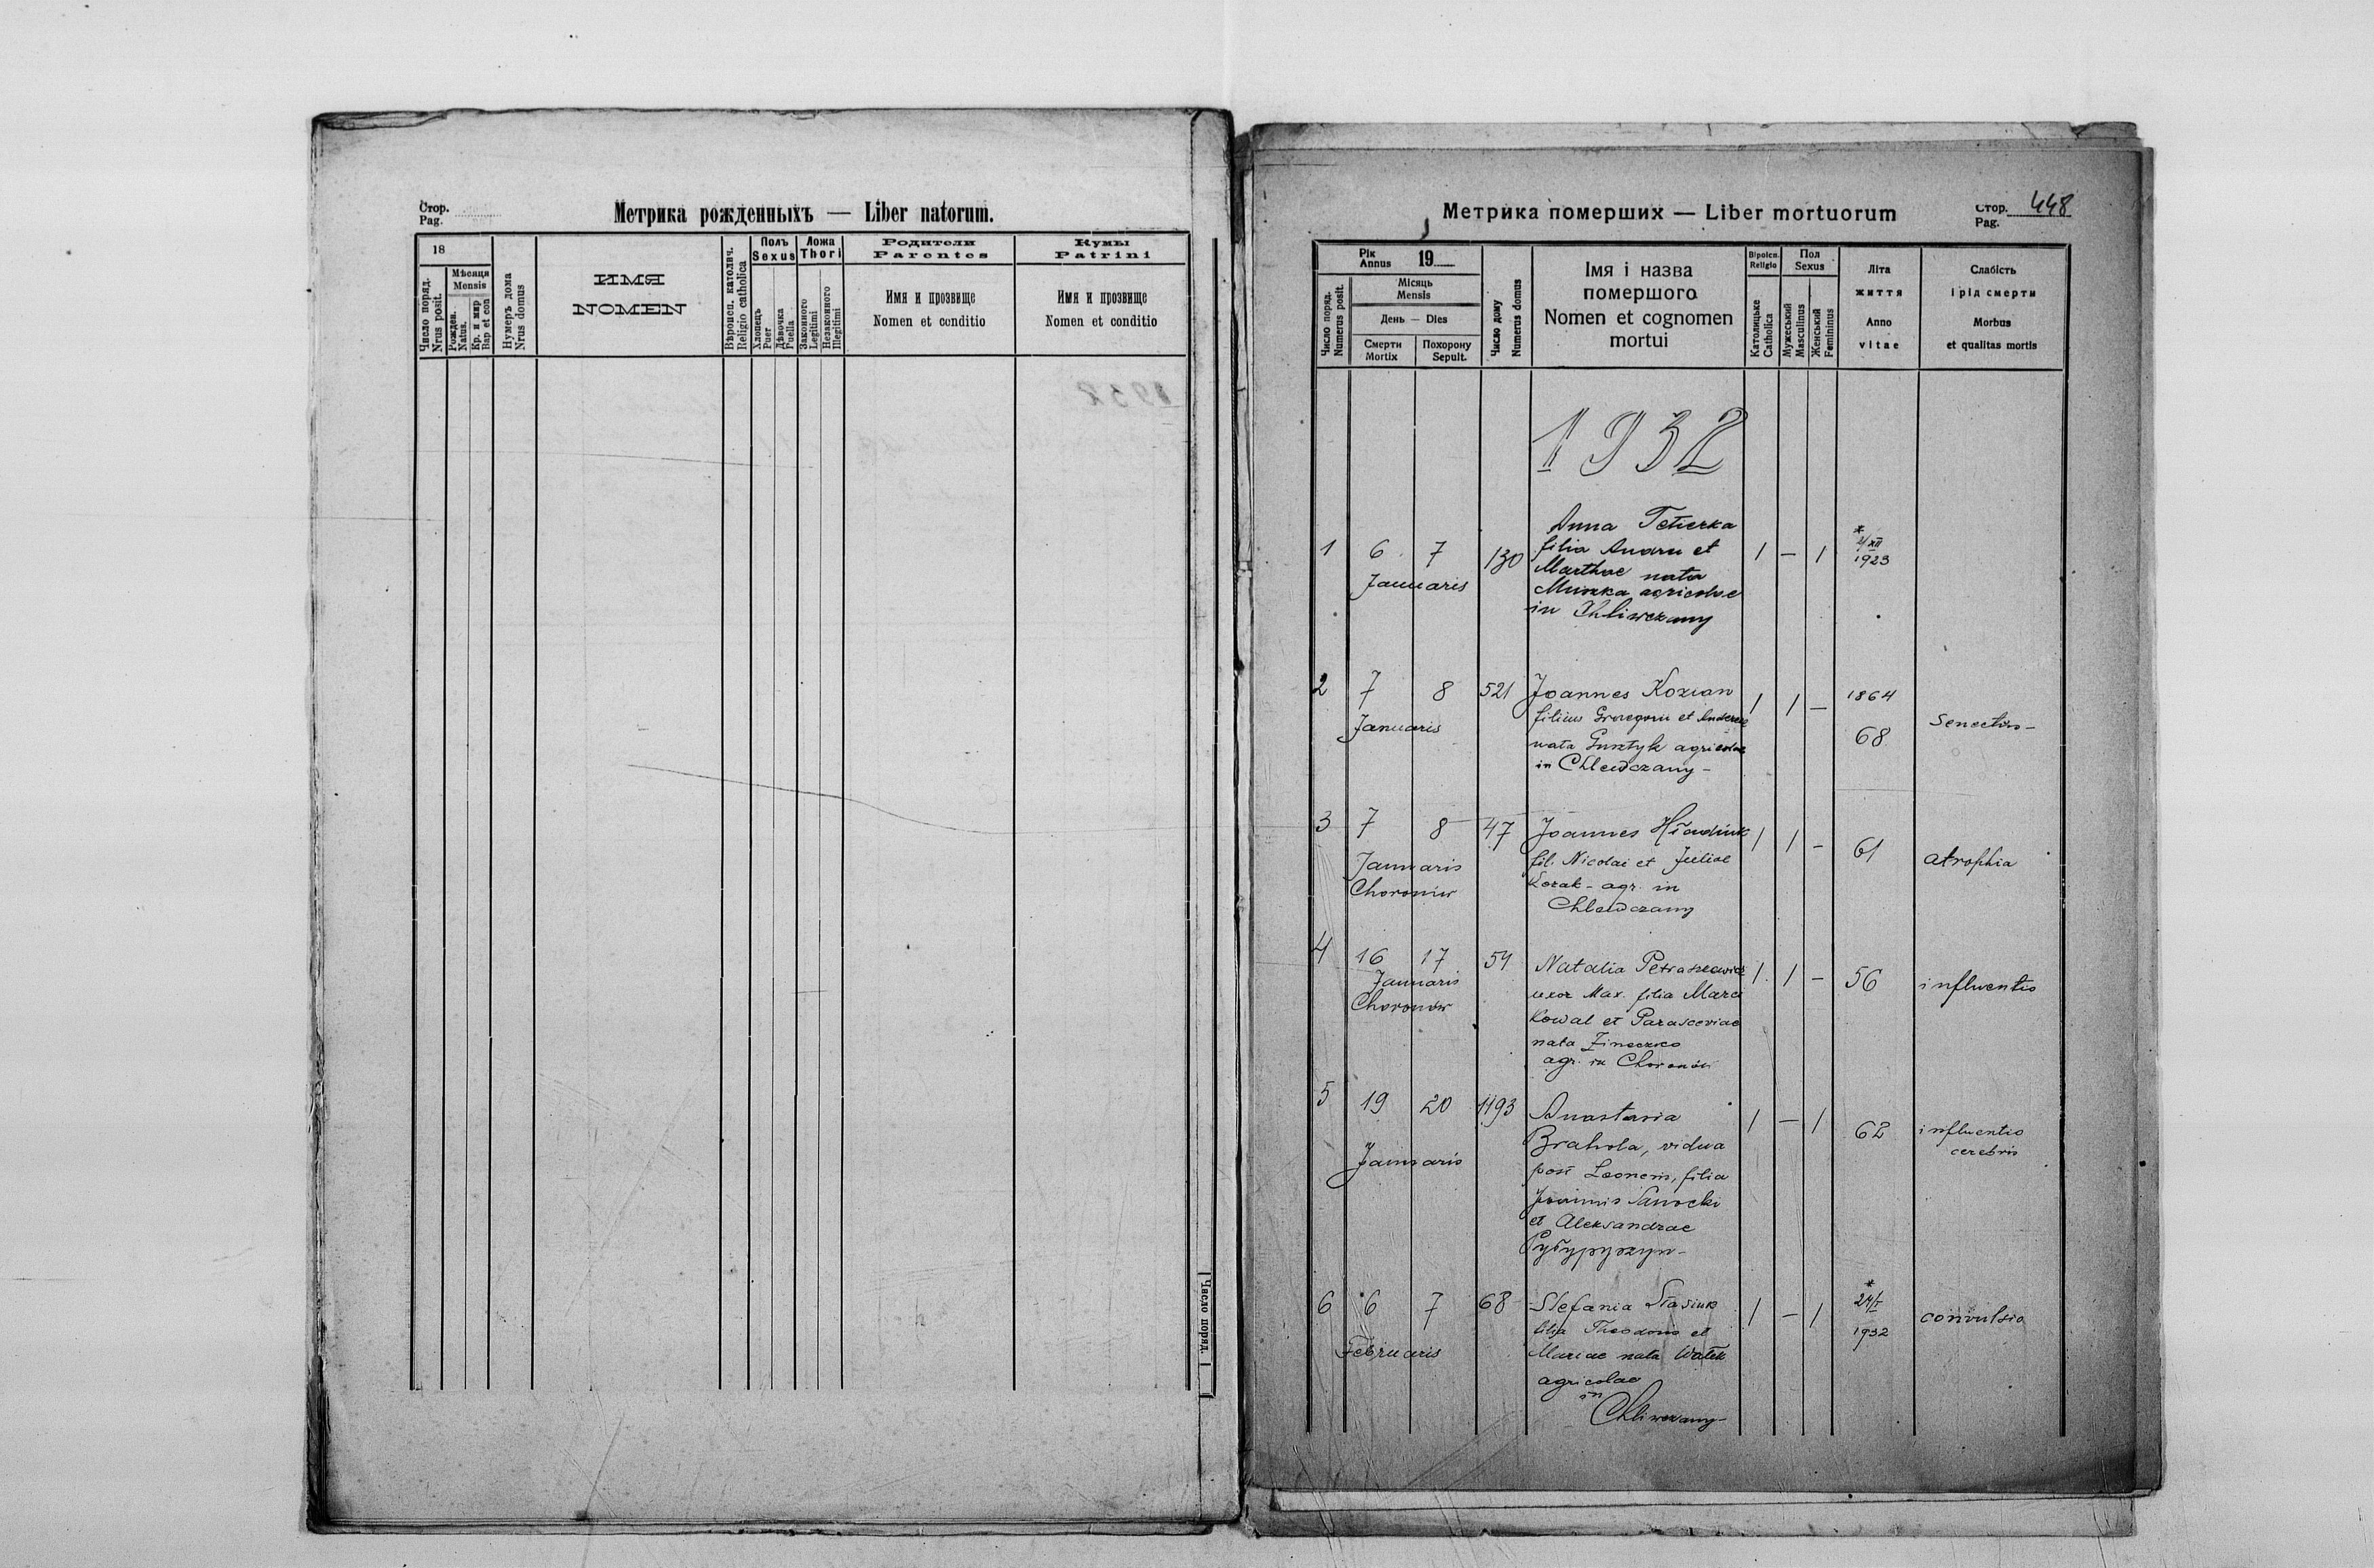 Стор.
Pag.
Метрика рожденныхъ — Liber natorum.
18
Число поряд.
Nrus posit.
Мѣсяця
Mensis
Рожден.
Natus.
Кр. и мир
Bap et con
Нумеръ дома
Nrus domus
ИМЯ
NOMEN
Вѣроисп. католич.
Religio catholica
Полъ
Sexus
Хлопець
Puer
Дѣвочка
Puella
Ложа
Thori
Законного
Legitimi
Незаконного
Illegitimi
Родители
Parentes
Имя и прозвище
Nomen et conditio
Кумы
Patrini
Имя и прозвище
Nomen et conditio
Число поряд.
Метрика померших — Liber mortuorum
Стор. 448
Pag.
Рік
Annus 19
Число поряд.
Numerus posit.
Місяць
Mensis
День — Dies
Смерти
Mortix
Похорону
Sepult.
Число дому
Numerus domus
Імя і назва
помершого
Nomen et cognomen
mortui
Віроісп.
Religio
Католицьке
Catholica
Пол
Sexus
Мужеський
Masculinus
Женський
Femininus
Літа
життя
Anno
vitae
Слабість
і рід смерти
Morbus
et qualitas mortis
1932
1 6 7 130 Anna
filia et 1 — 1 * XII 1923
Januaris Marthae nata
agricolae
in Chliwczany
2 7 8 521 Joannes Kozian 1 1 — 1864
Januaris filius et
nata agricolae 68
in Chlewczany -
3 7 8 47 Joannes 1 1 - 61 atrophia
Januaris fil. Nicolai et Juliae
Kozak - agr. in
Chlewczany
4 16 17 54 Natalia 1 1 - 56 influentio
Januaris uxor Max. filia Marci
Choronów Kowal et Parasceviae
nata
agr. in Choronów
5 19 20 Anastasia 1 — 1 62 influentio
cerebris
Januaris Brahola, vidua
post Leonem, filia
Joannis Sanocki
et Aleksandrae
6 6 7 68 Stefania Stasiuk 1 — 1 * 24/I 1932 convulsio
Februaris filia et
Mariae nata
agricolae
in
Chliwczany -